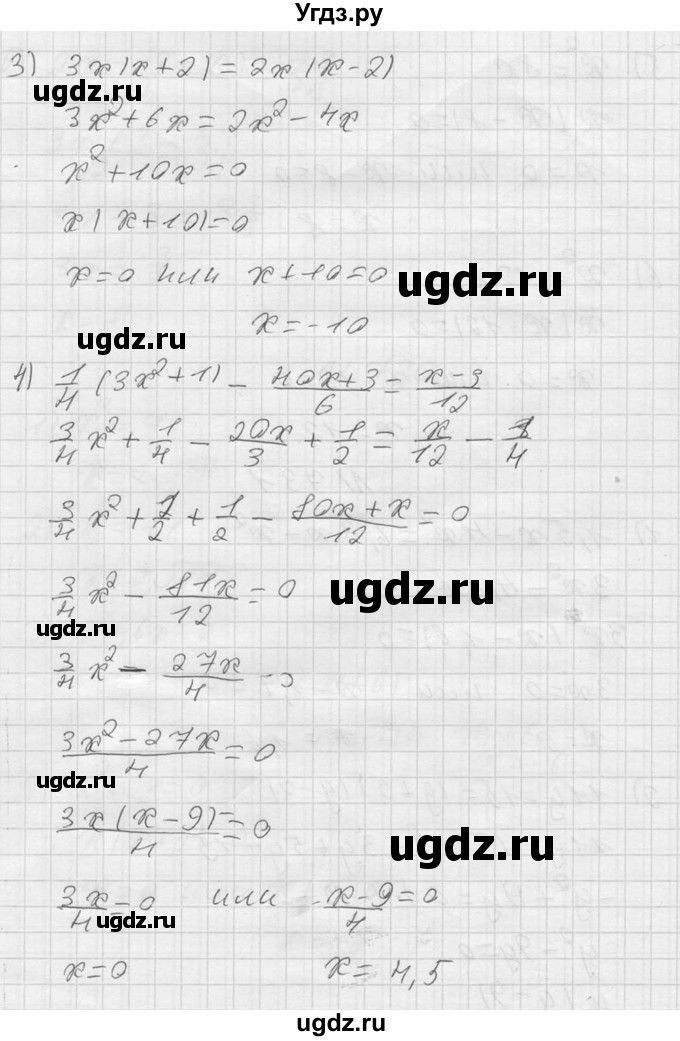 Угдз.ру
3) 3x(x+2)=2x(x-2)
ugdz.ru
3x²+6x=2x²-4x
x²+10x=0
x(x+10)=0
x=0 или x+10=0
ugdz.ru
x=-10
ugdz.ru
4) 1/4 (3x²+1) - 40x+3/6 = x-3/12
3/4 x² + 1/4 - 20x/3 + 1/2 = x/12 - 1/4
3/4 x² + 1/2 + 1/2 - 80x+x/12 = 0
3/4 x² - 81x/12 = 0
ugdz.ru
ugdz.ru
3/4 x² - 27x/4 = 0
3x²-27x/4 = 0
ugdz.ru
3x(x-9)/4 = 0
ugdz.ru
3x/4 = 0 или x-9/4 = 0
x=0 x=4,5
ugdz.ru
ugdz.ru